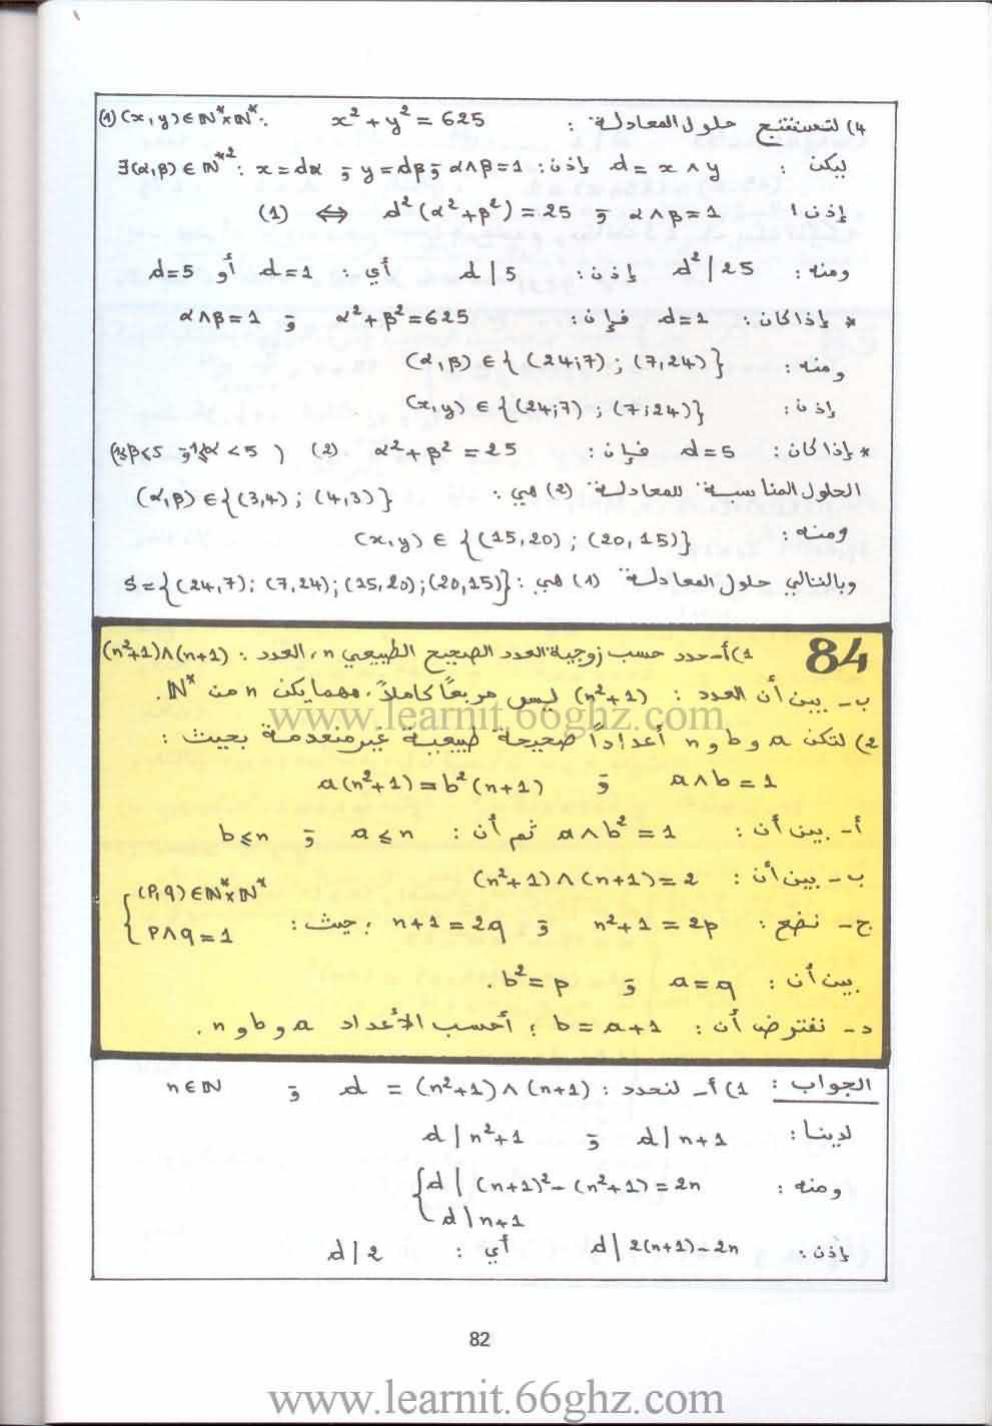 4) لنستنتج حلول المعادلة : x² + y² = 625 (1) (x,y)∈ℕ*×ℕ* :
ليكن : d = x ∧ y إذن : ∃(α,β) ∈ ℕ*² : x = dα و y = dβ و α∧β = 1
إذن : (1) ⇔ d²(α²+β²) = 25 و α∧β = 1
ومنه : d²|25 إذن : d|5 أي : d=1 أو d=5
* إذا كان : d=1 فإن : α²+β²=625 و α∧β=1
ومنه : (α,β) ∈ {(24;7) ; (7,24)}
إذن : (x,y) ∈ {(24;7) ; (7;24)}
* إذا كان : d=5 فإن : α²+β² = 25 (2)
الحلول المناسبة للمعادلة (2) هي : (α,β) ∈ {(3,4) ; (4,3)}
ومنه : (x,y) ∈ {(15,20) ; (20,15)}
وبالتالي حلول المعادلة (1) هي : S={(24,7); (7,24); (15,20); (20,15)}
84
1) أ- حدد حسب زوجية العدد الصحيح الطبيعي n ، العدد : (n²+1)∧(n+1)
ب- بين أن العدد : (n²+1) ليس مربعاً كاملاً، مهما يكن n من ℕ*.
www.learnit.66ghz.com
2) لتكن a و b و n أعداداً صحيحة طبيعية غير منعدمة بحيث :
a∧b = 1 و a(n²+1) = b²(n+1)
أ- بين أن : a∧b² = 1 ثم أن : a ⩽ n و b ⩽ n
ب- بين أن : (n²+1)∧(n+1) = 2
ج- نضع : n²+1 = 2p و n+1 = 2q ; حيث : { (p,q)∈ℕ*×ℕ* p∧q = 1
بين أن : a = q و b² = p .
د- نفترض أن : b = a+1 ; أحسب الأعداد a و b و n .
الجواب : 1) أ- لنحدد : d = (n²+1)∧(n+1) و n∈ℕ
لدينا : d|n+1 و d|n²+1
ومنه : { d|(n+1)²-(n²+1) = 2n
d|n+1
إذن : d|2(n+1)-2n أي : d|2
82
www.learnit.66ghz.com